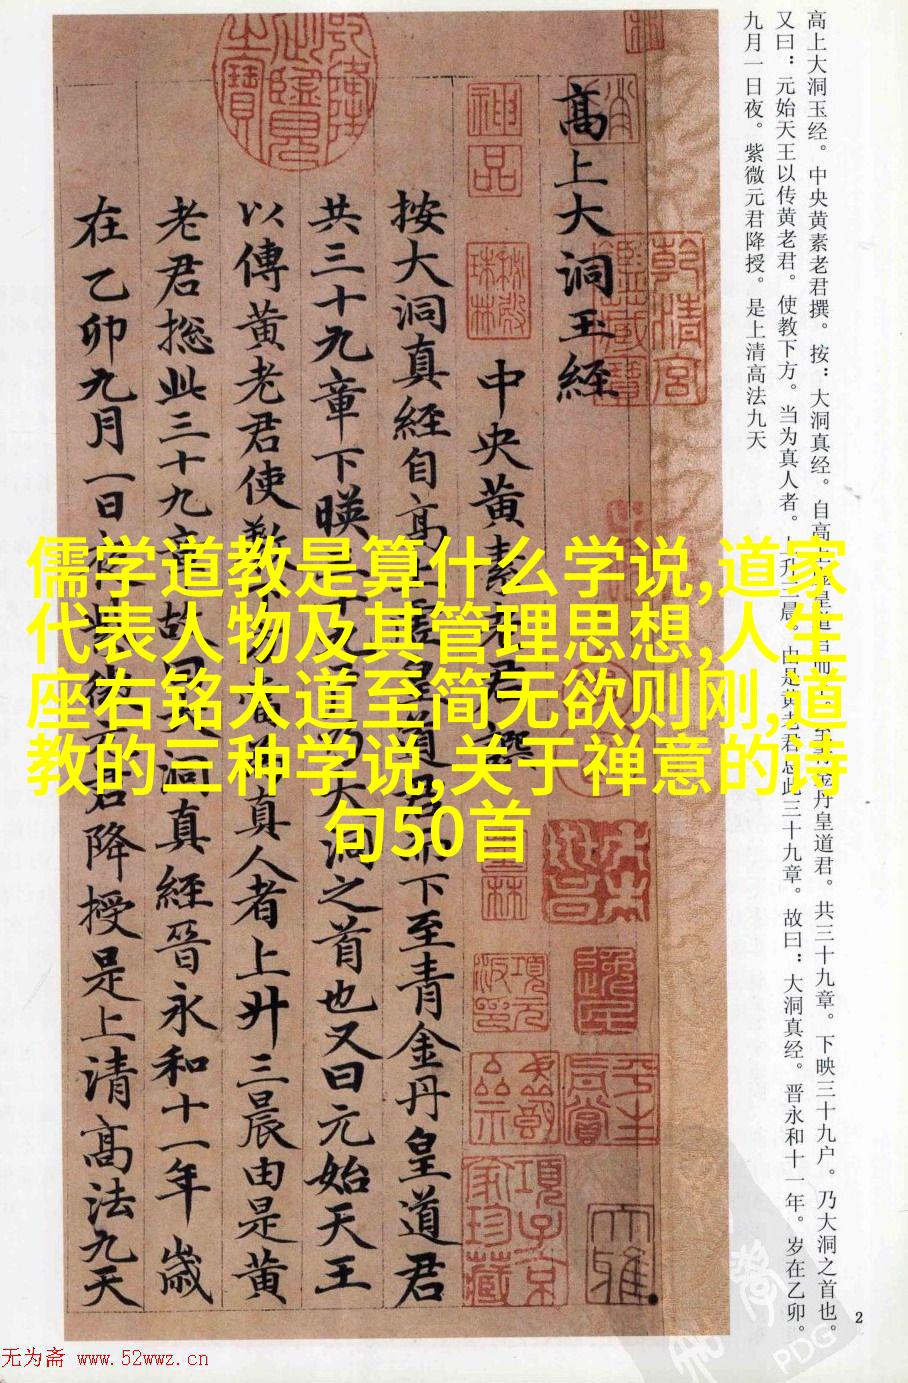 高上大洞玉经。中央黄素老君撰。按：大洞真经。自高
丹皇道君。共三十九章。下映三十九户。乃大洞之首也。
又曰：元始天王以传黄老君。使教下方。当为真人者。上升三晨。由是黄老君总此三十九章。故曰：大洞真经。晋永和十一年。岁在乙卯。
九月一日夜。紫微元君降授。是上清高法九天
高上大洞玉經
中央黄素老君撰
按大洞真經自高
皇道君
下至青金丹皇道君
共三十九章下暎三十
大洞之首也又曰元始天王
以傳黄老君使教
真人者上升三晨由是黄
老君揔此三十九章故曰大洞真經晉永和十一年歲
在乙卯九月一日夜紫微元君降授是上清高法九天
神品
乾清宮鑑藏寶
項子京家珍藏
平生真賞
儒学道教是算什么学说,道家
代表人物及其管理思想,人生
座右铭大道至简无欲则刚,道
教的三种学说,关于禅意的诗
句50首
2
PDG
无为斋 www.52wwz.cn